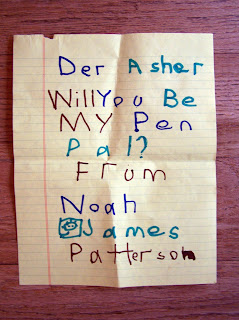 Der Asher
Will You Be
MY Pen
Pal?
From
Noah
James
Patterson